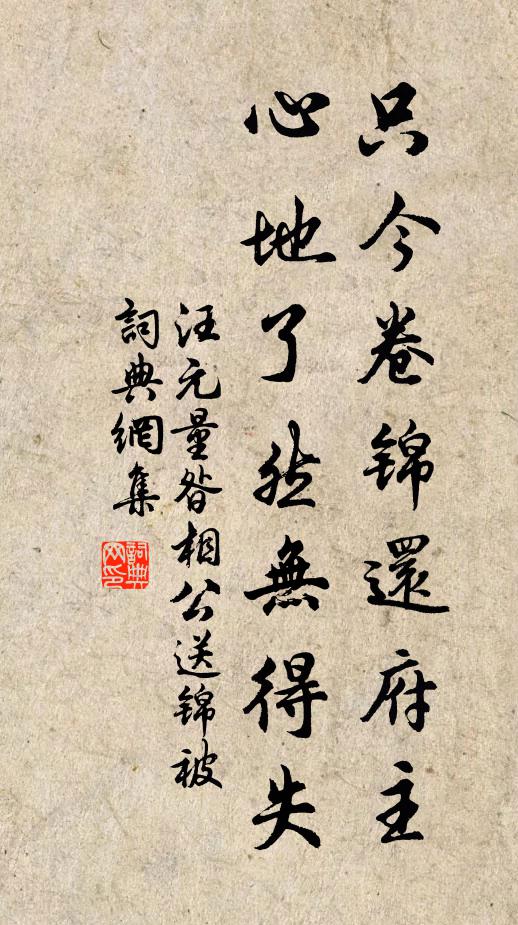 只今卷锦還府主
心地了然無得失
汪元量昝相公送锦被
詞典網集
詞典網印